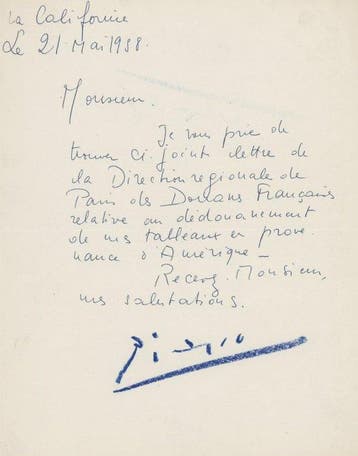 La Californie
Le 21 Mai 1958.
Monsieur.
Je vous prie de
trouver ci-joint lettre de
la Direction régionale de
Paris des Douanes Françaises
relative au dédouanement
de mes tableaux en prove
nance d'Amérique –
Recevez. Monsieur,
mes salutations.
Picasso